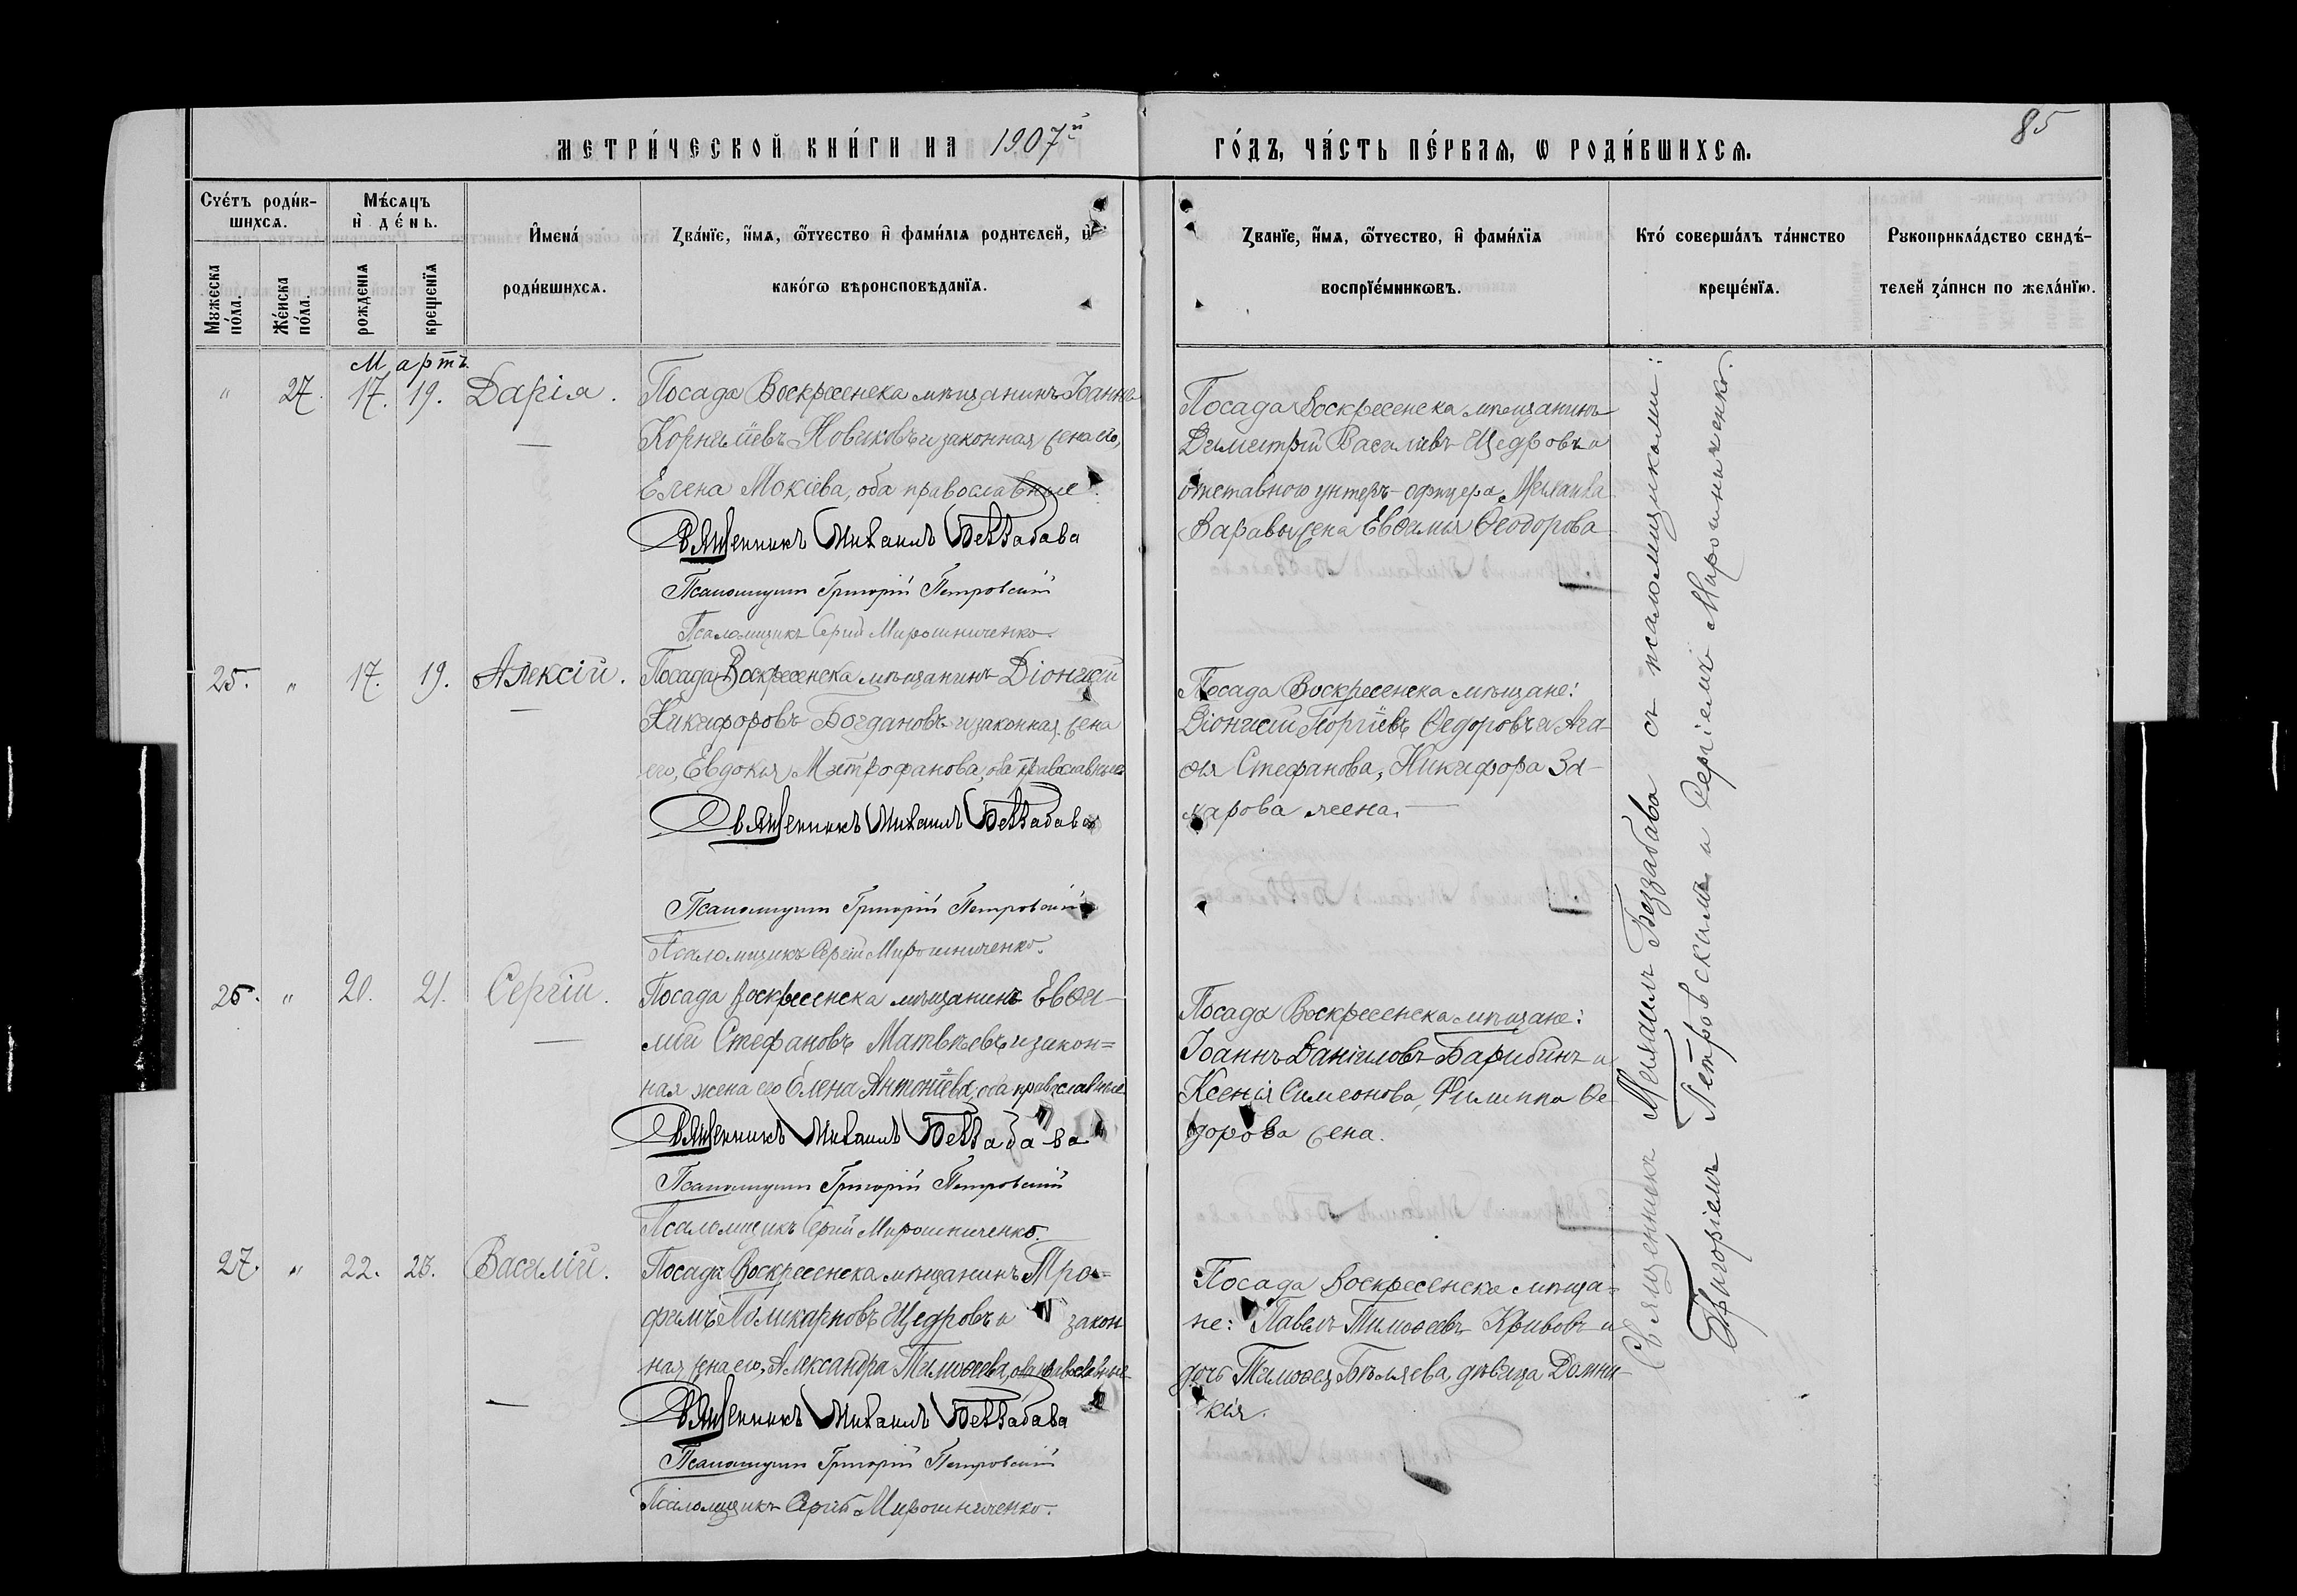 МЕТРИ́ЧЕСКОЙ КНИ́ГИ НА 1907й
ГО́ДЪ, ЧА́СТЬ ПЕ́РВАѦ, Ѡ РОДИ́ВШИХСѦ.
85
Счétъ роди́в-
шихсѧ.
Мѣ́сѧцъ
и҆ де́нь.
Мꙋжеска
по́ла.
Же́нска
по́ла.
рожденїѧ
крещенїѧ
И҆мена̀
роди́вшихсѧ.
Ꙁва́нїе, и҆́мѧ, ѻ҆́тчество и҆ фами́лїѧ родителей, и҆
како́гѡ вѣроисповѣданїѧ.
Ꙁванїе, и҆́мѧ, ѻ҆́тчество, и҆ фами́лїѧ
воспрїе́мникѡвъ.
Кто̀ соверша́лъ та́инство
креще́нїѧ.
Рꙋкоприкла́дство свидѣ́-
телей ꙁа́писи по жела́нїю.
Мартъ.
" 27. 17. 19. Дарія.
Посада Воскресенска мѣщанинъ Іоаннъ
Корниліевъ Новиковъ и законная жена его,
Елена Мокіева, оба православные.
Священникъ Михаилъ Беззабава
Псаломщикъ Григорій Петровскій
Псаломщикъ Сергій Мирошниченко.
Посада Воскресенска мѣщанинъ
Димитрій Василіевъ Щедровъ и
отставного унтеръ-офицера Михаила
жена Евѳимія Ѳеодорова
25. " 17. 19. Алексій.
Посада Воскресенска мѣщанинъ Діонисій
Никифоровъ Богдановъ и законная жена
его, Евдокія Митрофанова, оба православные
Священникъ Михаилъ Беззабава
Псаломщикъ Григорій Петровскій
Псаломщикъ Сергій Мирошниченко.
Посада Воскресенска мѣщане:
Діонисій Георгіевъ Ѳедоровъ и Ага-
ѳія Стефанова, Никифора За-
харова жена.
26. " 20. 21. Сергій.
Посада Воскресенска мѣщанинъ Евѳи-
мій Стефановъ Матвѣевъ и закон=
ная жена его Елена Антоніева, оба православные
Священникъ Михаилъ Беззабава
Псаломщикъ Григорій Петровскій
Псаломщикъ Сергій Мирошниченко.
Посада Воскресенска мѣщане:
Іоаннъ Даніиловъ Барибинъ и
Ксенія Симеонова, Филиппа Ѳе
дорова жена.
27. " 22. 23. Василій.
Посада Воскресенска мѣщанинъ Тро=
фимъ Поликарповъ Щедровъ и закон
ная жена его, Александра Тимоѳеева, оба православные
Священникъ Михаилъ Беззабава
Псаломщикъ Григорій Петровскій
Псаломщикъ Сергій Мирошниченко.
Посада Воскресенска мѣща=
не: Павелъ Тимоѳеевъ Кривовъ и
дочь Тимоѳея Бѣляева, дѣвица Домни-
кія.
Священникъ Михаилъ Беззабава съ псаломщиками:
Григоріемъ Петровскимъ и Сергіемъ Мирошниченко.